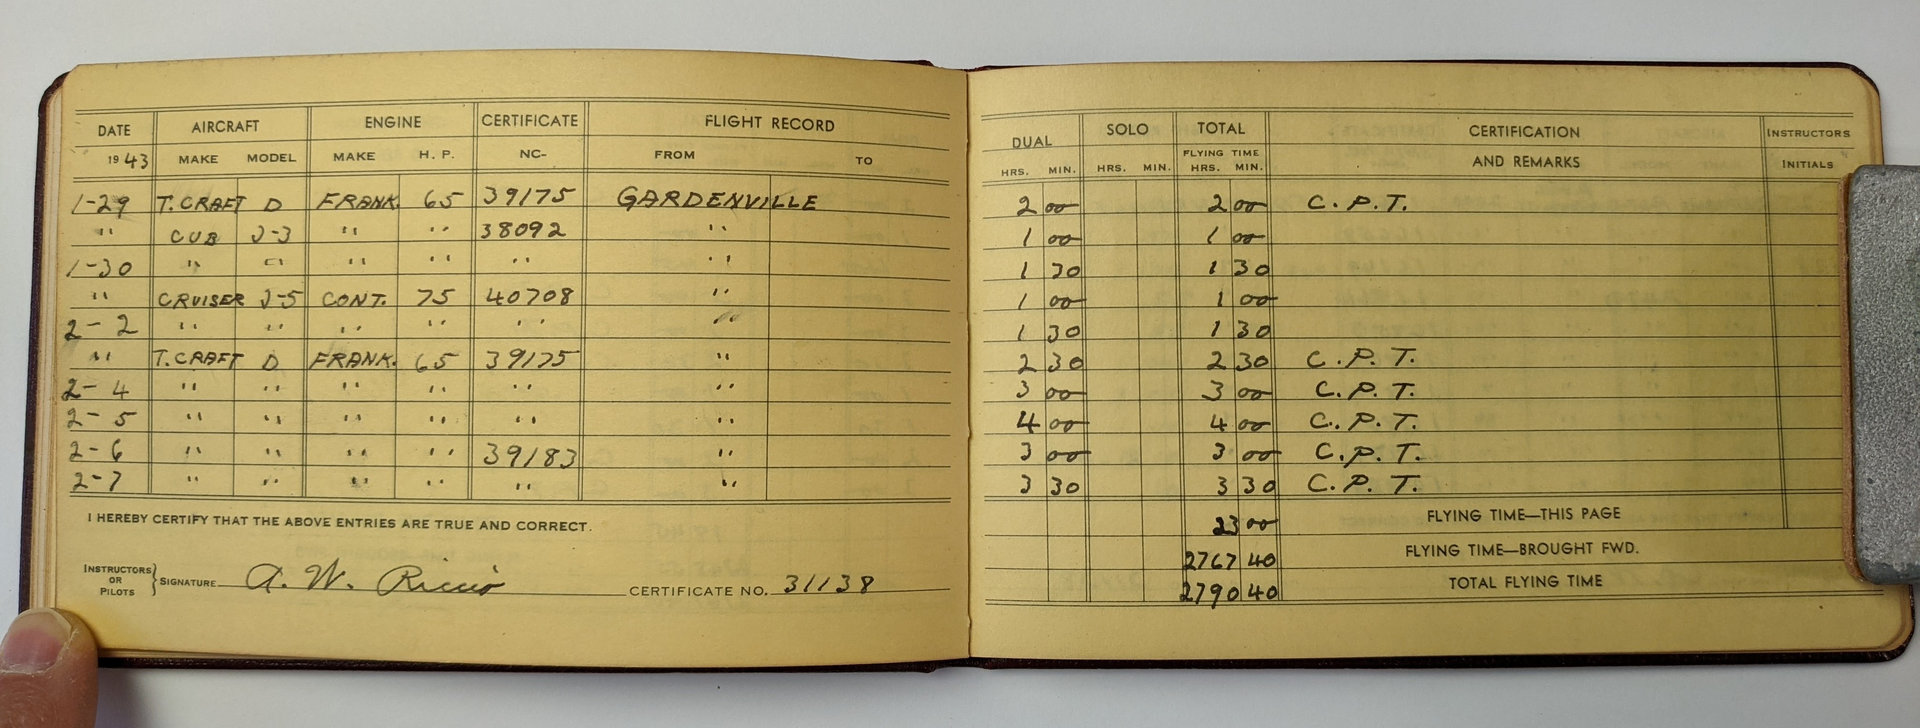 DATE AIRCRAFT ENGINE CERTIFICATE FLIGHT RECORD
1943 MAKE MODEL MAKE H. P. NC- FROM TO
1-29 T. CRAFT D FRANK. 65 39175 GARDENVILLE
" CUB J-3 " " 38092 "
1-30 " " " " " "
" CRUISER J-5 CONT. 75 40708 "
2-2 " " " " " "
" T. CRAFT D FRANK. 65 39175 "
2-4 " " " " " "
2-5 " " " " " "
2-6 " " " " 39183 "
2-7 " " " " " "
I HEREBY CERTIFY THAT THE ABOVE ENTRIES ARE TRUE AND CORRECT.
INSTRUCTORS OR PILOTS } SIGNATURE A. W. Riccio CERTIFICATE NO. 31138
DUAL SOLO TOTAL CERTIFICATION INSTRUCTORS
FLYING TIME AND REMARKS INITIALS
HRS. MIN. HRS. MIN. HRS. MIN.
2 00 2 00 C. P. T.
1 00 1 00
1 30 1 30
1 00 1 00
1 30 1 30
2 30 2 30 C. P. T.
3 00 3 00 C. P. T.
4 00 4 00 C. P. T.
3 00 3 00 C. P. T.
3 30 3 30 C. P. T.
23 00 FLYING TIME—THIS PAGE
2767 40 FLYING TIME—BROUGHT FWD.
2790 40 TOTAL FLYING TIME